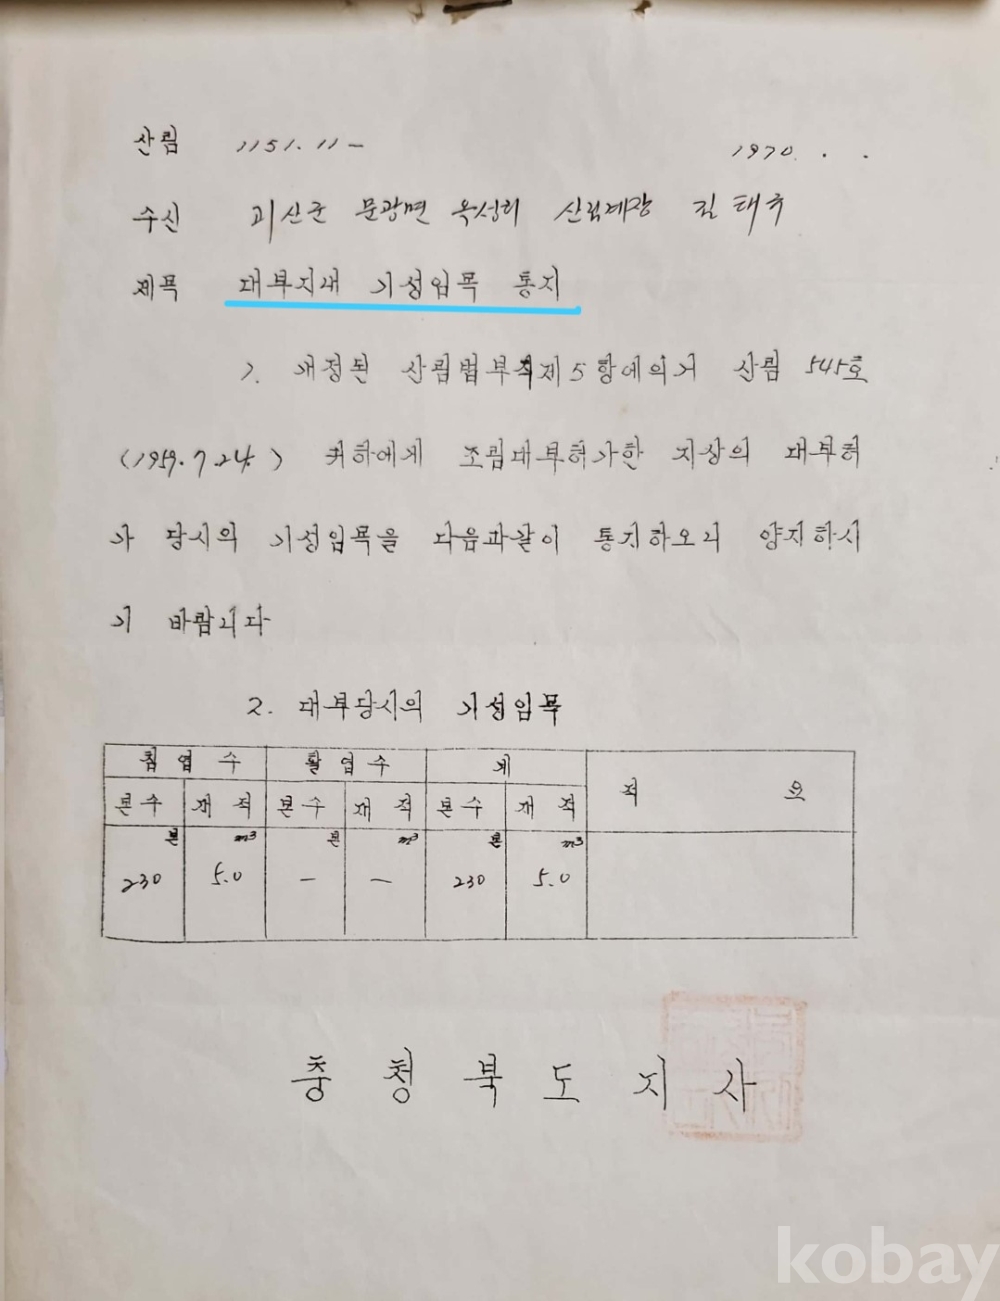 산림 1151.11- 1970. . .
수신 괴산군 문광면 옥성리 산림계장 김태우
제목 대부지내 기성입목 통지
1. 개정된 산림법부칙제5항에의거 산림 545호
(1959.7.24) 귀하에게 조림대부허가한 지상의 대부허
가 당시의 기성입목을 다음과같이 통지하오니 양지하시
기 바랍니다
2. 대부당시의 기성입목
침엽수 활엽수 계 적 요
본수 재적 본수 재적 본수 재적
본 m³ 본 m³ 본 m³
230 5.0 — — 230 5.0
충청북도지사
kobay